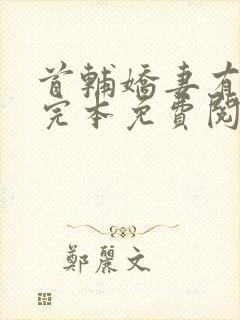 首輔嬌妻有
完本免費閱
鄭麗文